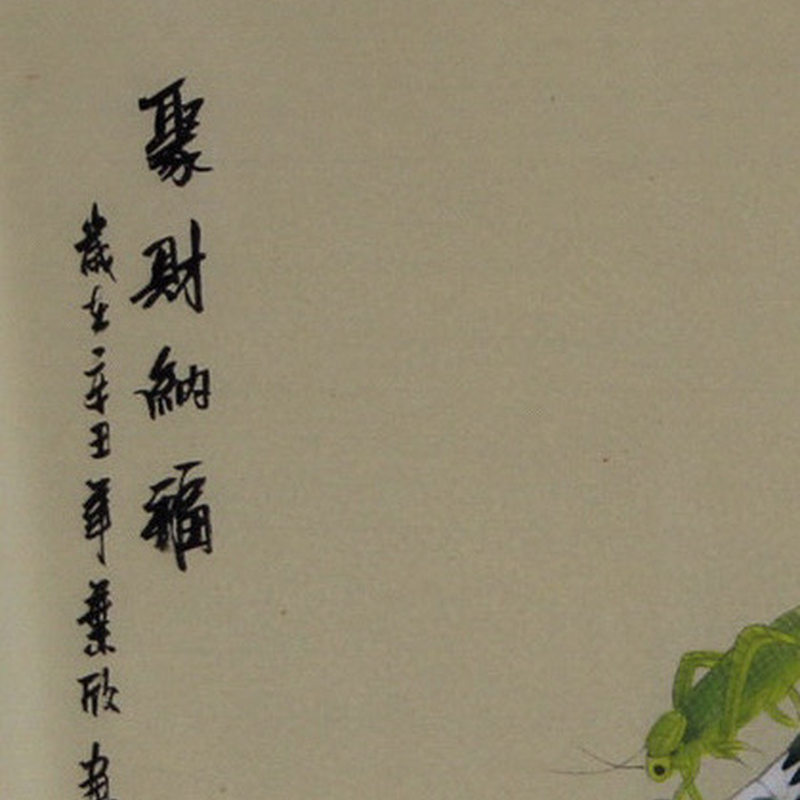 聚財納福
歲在辛丑年葉欣畫